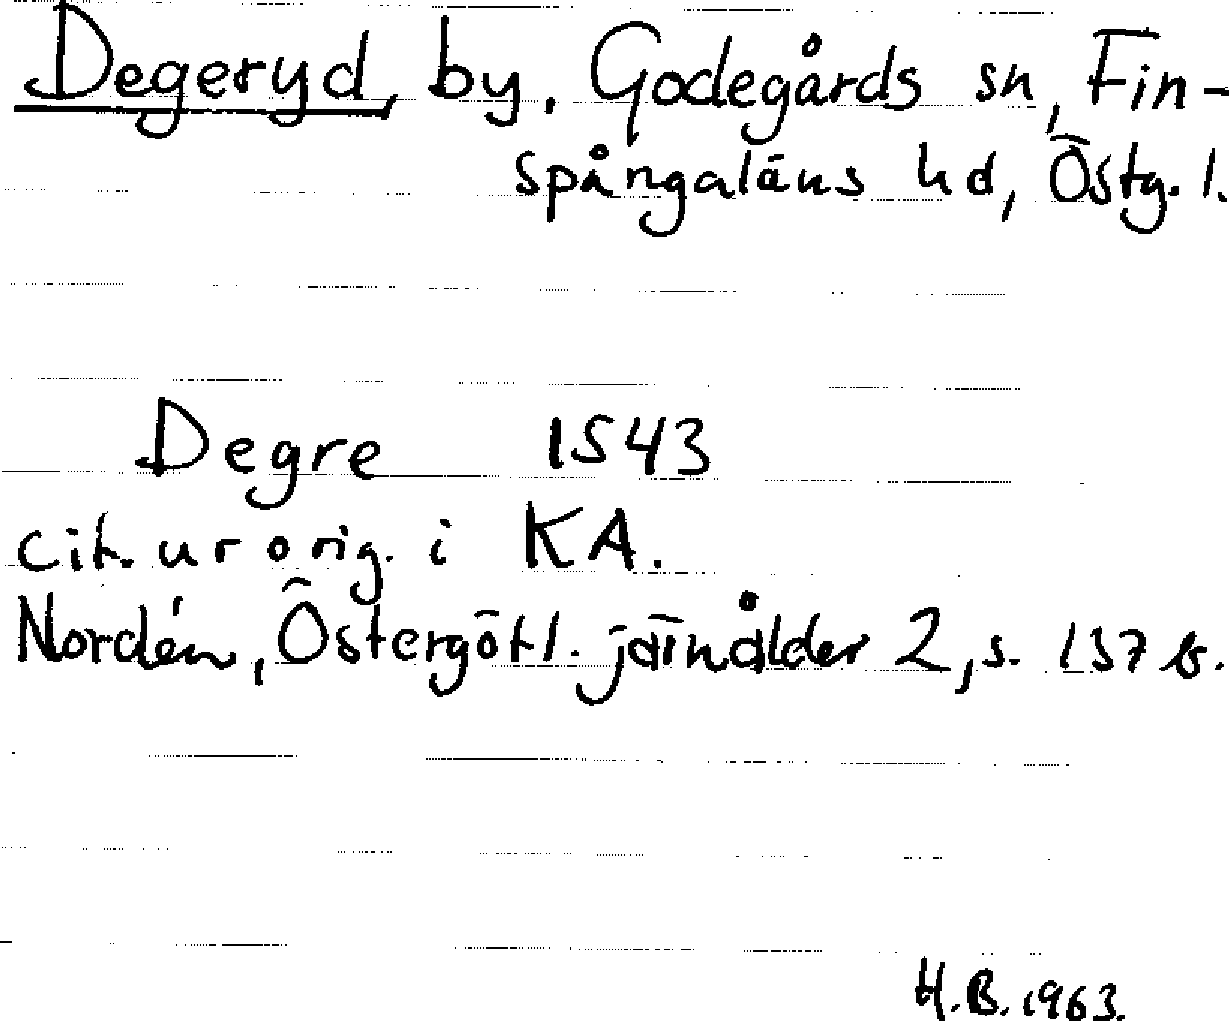 Degeryd, by, Godegårds sn, Fin-
spångaläns hd, Östg. l.
Degre 1543
cit. ur orig. i KA.
Nordén, Östergötl. järnålder 2, s. 137 b.
H.B. 1963.